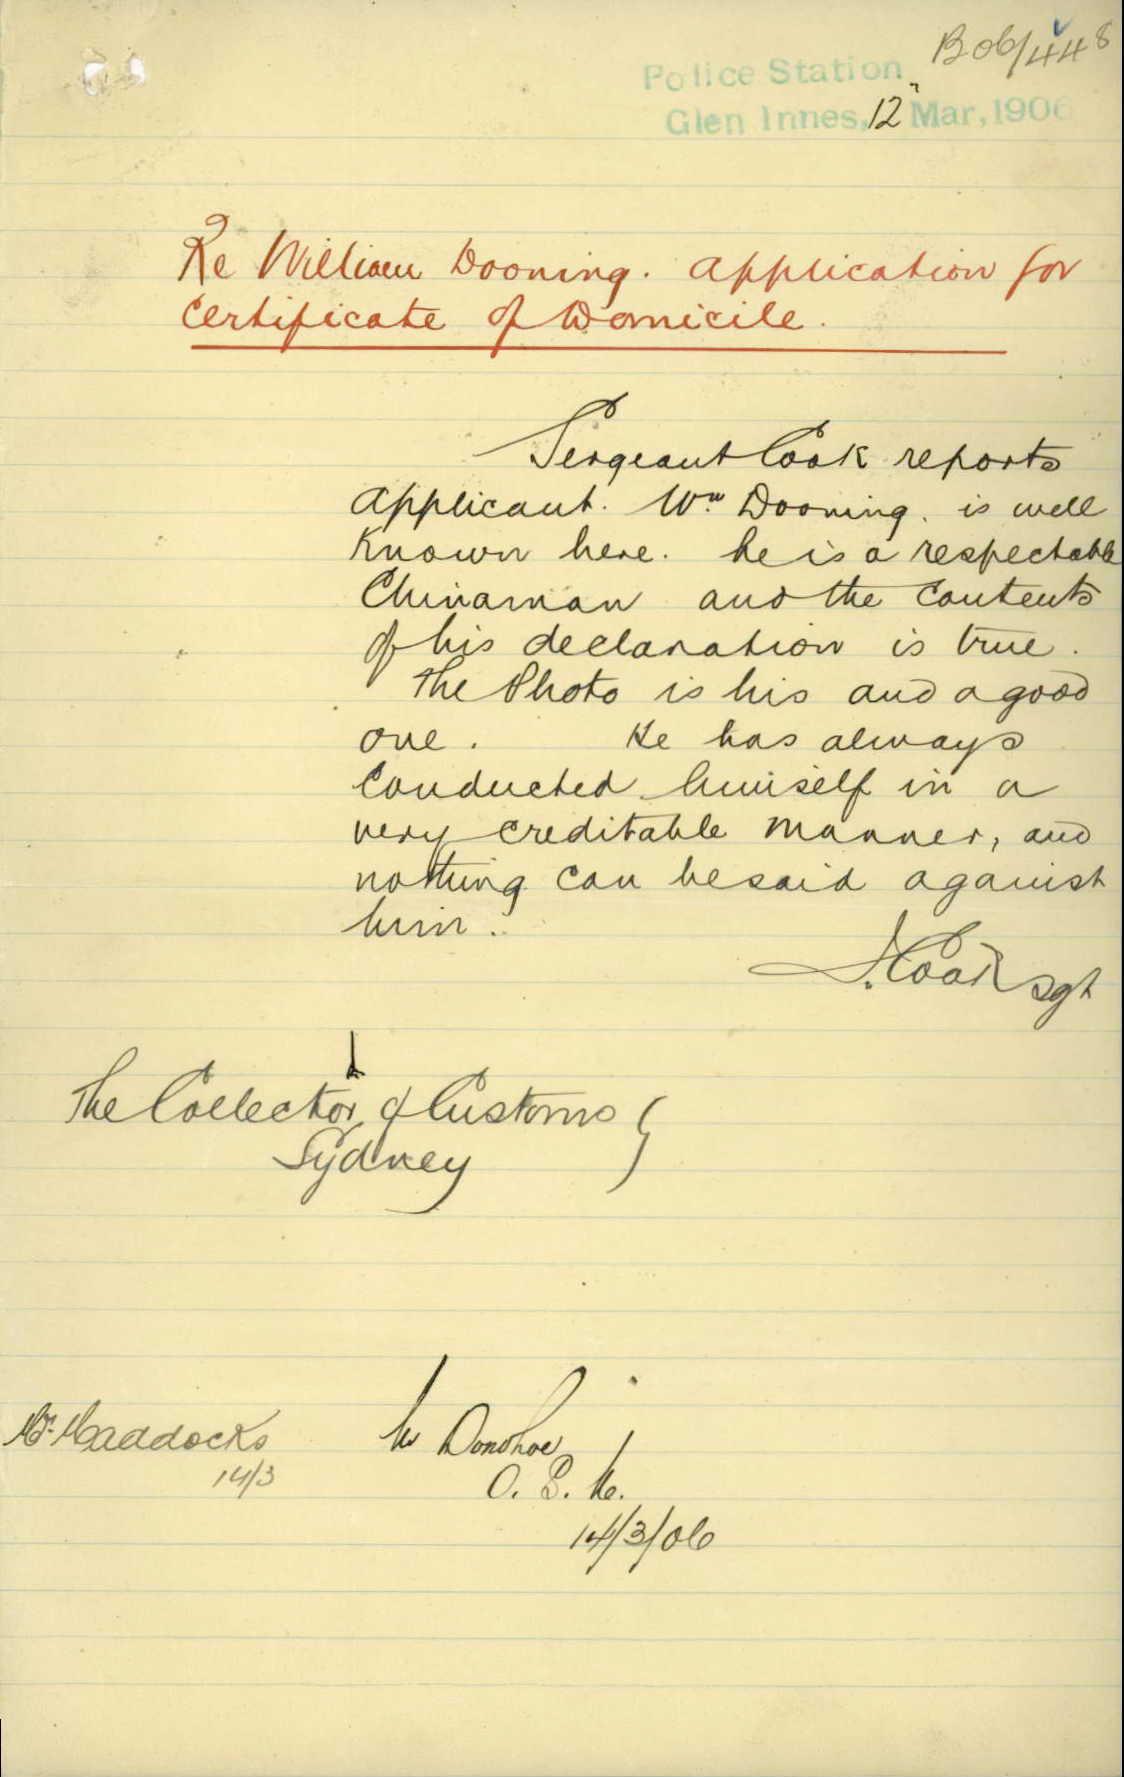 B06/448
Police Station
Glen Innes, 12 Mar, 1906
Re William Dooning. Application for
Certificate of Domicile.
Sergeant Cook reports
applicant. Wm Dooning. is well
known here. he is a respectable
Chinaman and the contents
of his declaration is true.
The Photo is his and a good
one. He has always
conducted himself in a
very creditable manner, and
nothing can be said against
him.
Cook Sgt
The Collector of Customs
Sydney
Mr. Maddocks
14/3
Donohoe
14/3/06